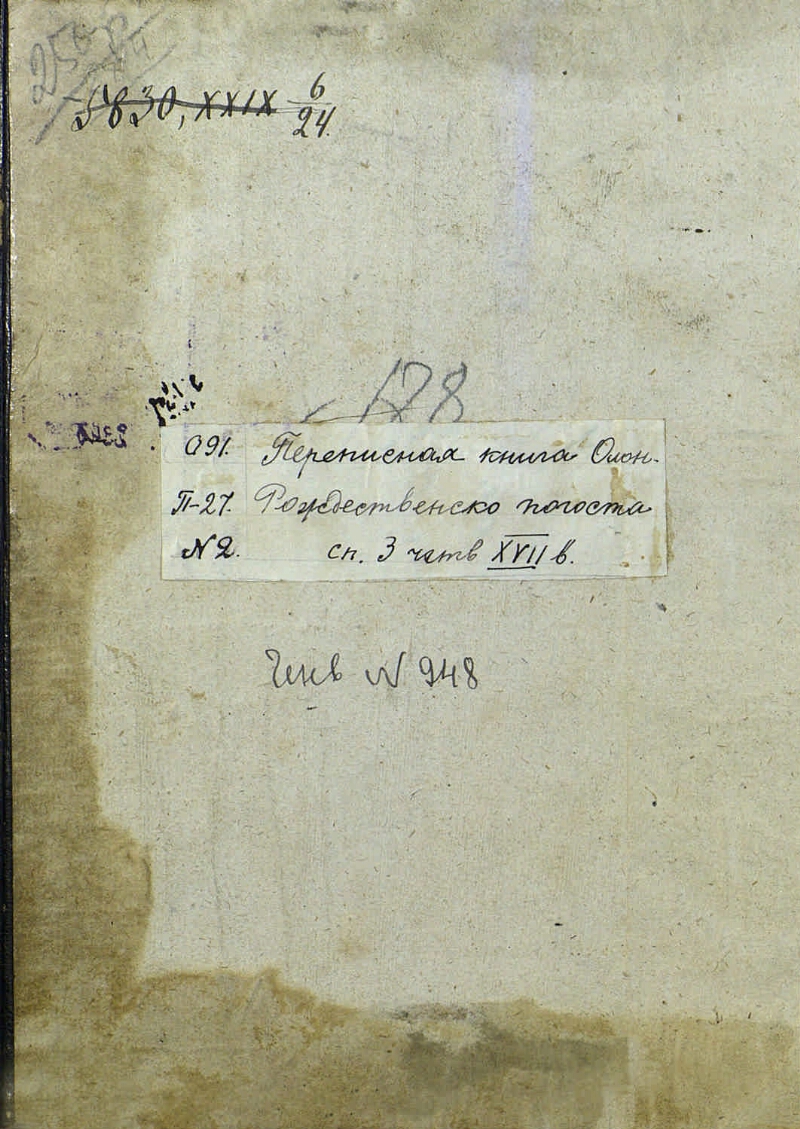 5830, XXIX 6/24
128
091. Переписная книга Олон.
П-27. Рождественско погоста
№2. сп. 3 четв XVII в.
Инв № 948